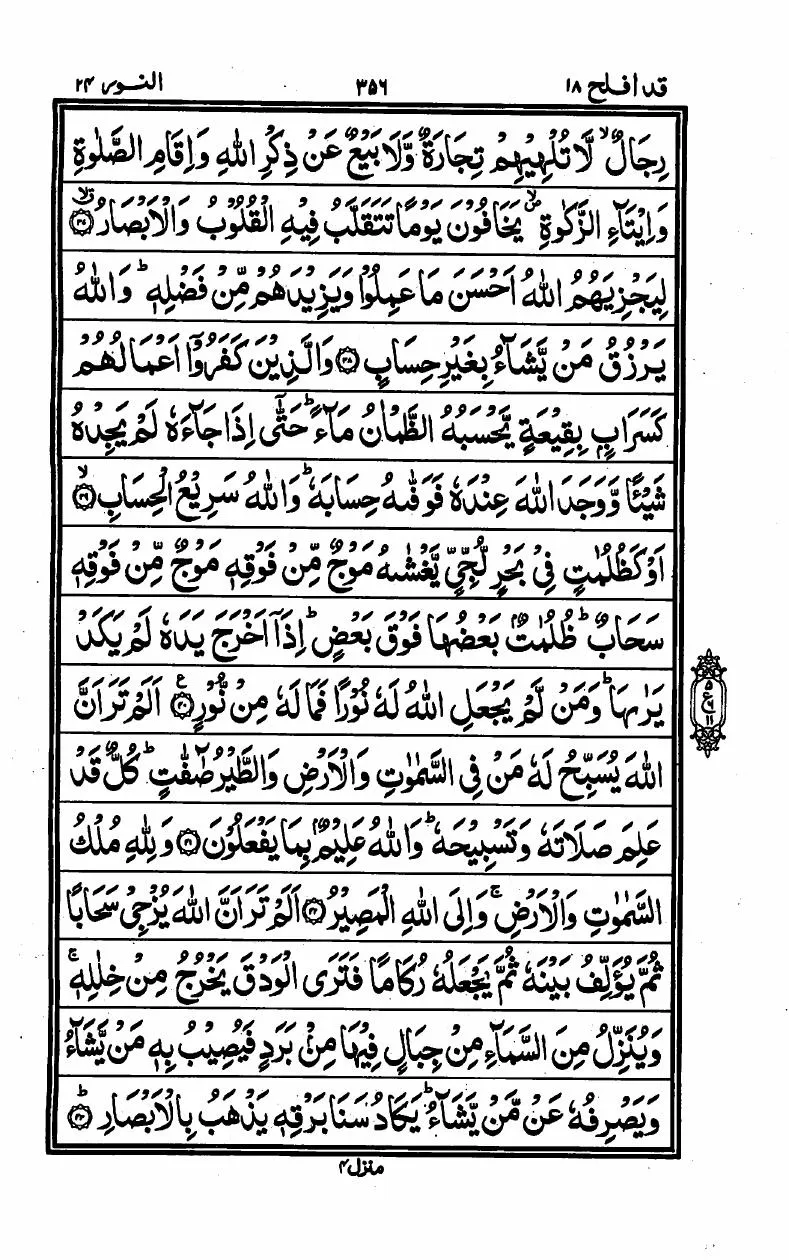 قد افلح ١٨ ٣٥٦ النور ٢٤
رِجَالٌ ۙ لَّا تُلْهِيْهِمْ تِجَارَةٌ وَّلَا بَيْعٌ عَنْ ذِكْرِ اللّٰهِ وَاِقَامِ الصَّلٰوةِ
وَاِيْتَآءِ الزَّكٰوةِ ۪ۙ يَخَافُوْنَ يَوْمًا تَتَقَلَّبُ فِيْهِ الْقُلُوْبُ وَالْاَبْصَارُ ۙ۝٣٧
لِيَجْزِيَهُمُ اللّٰهُ اَحْسَنَ مَا عَمِلُوْا وَيَزِيْدَهُمْ مِّنْ فَضْلِهٖ ؕ وَاللّٰهُ
يَرْزُقُ مَنْ يَّشَآءُ بِغَيْرِ حِسَابٍ ۝٣٨ وَالَّذِيْنَ كَفَرُوْۤا اَعْمَالُهُمْ
كَسَرَابٍۭ بِقِيْعَةٍ يَّحْسَبُهُ الظَّمْاٰنُ مَآءً ؕ حَتّٰۤى اِذَا جَآءَهٗ لَمْ يَجِدْهُ
شَيْـًٔا وَّوَجَدَ اللّٰهَ عِنْدَهٗ فَوَفّٰىهُ حِسَابَهٗ ؕ وَاللّٰهُ سَرِيْعُ الْحِسَابِ ۙ۝٣٩
اَوْ كَظُلُمٰتٍ فِيْ بَحْرٍ لُّجِّيٍّ يَّغْشٰىهُ مَوْجٌ مِّنْ فَوْقِهٖ مَوْجٌ مِّنْ فَوْقِهٖ
سَحَابٌ ؕ ظُلُمٰتٌۢ بَعْضُهَا فَوْقَ بَعْضٍ ؕ اِذَاۤ اَخْرَجَ يَدَهٗ لَمْ يَكَدْ
يَرٰىهَا ؕ وَمَنْ لَّمْ يَجْعَلِ اللّٰهُ لَهٗ نُوْرًا فَمَا لَهٗ مِنْ نُّوْرٍ ۝٤٠ع اَلَمْ تَرَ اَنَّ
اللّٰهَ يُسَبِّحُ لَهٗ مَنْ فِي السَّمٰوٰتِ وَالْاَرْضِ وَالطَّيْرُ صٰٓفّٰتٍ ؕ كُلٌّ قَدْ
عَلِمَ صَلَاتَهٗ وَتَسْبِيْحَهٗ ؕ وَاللّٰهُ عَلِيْمٌۢ بِمَا يَفْعَلُوْنَ ۝٤١ وَلِلّٰهِ مُلْكُ
السَّمٰوٰتِ وَالْاَرْضِ ۚ وَاِلَى اللّٰهِ الْمَصِيْرُ ۝٤٢ اَلَمْ تَرَ اَنَّ اللّٰهَ يُزْجِيْ سَحَابًا
ثُمَّ يُؤَلِّفُ بَيْنَهٗ ثُمَّ يَجْعَلُهٗ رُكَامًا فَتَرَى الْوَدْقَ يَخْرُجُ مِنْ خِلٰلِهٖ ۚ
وَيُنَزِّلُ مِنَ السَّمَآءِ مِنْ جِبَالٍ فِيْهَا مِنْۢ بَرَدٍ فَيُصِيْبُ بِهٖ مَنْ يَّشَآءُ
وَيَصْرِفُهٗ عَنْ مَّنْ يَّشَآءُ ؕ يَكَادُ سَنَا بَرْقِهٖ يَذْهَبُ بِالْاَبْصَارِ ؕ۝٤٣
٥ ع ٦ ١١
منزل ٤